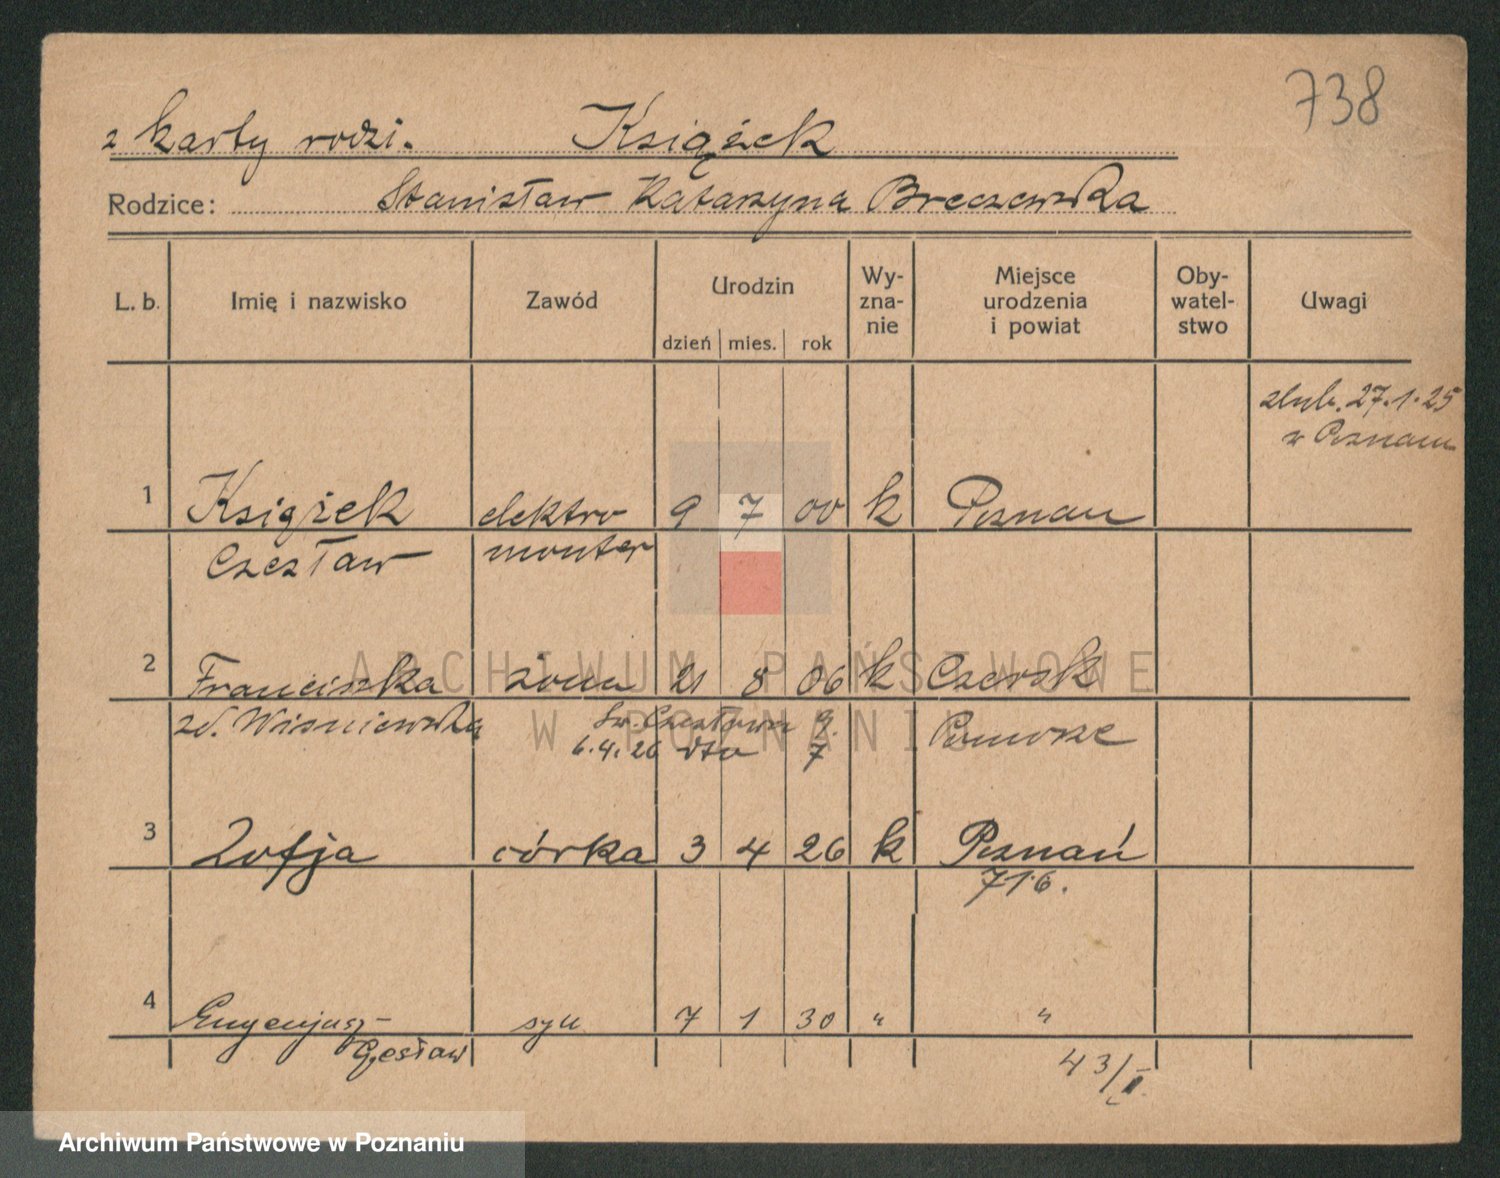 738
z karty rodzi. Książek
Rodzice: Stanisław Katarzyna Breczewska
L. b. Imię i nazwisko Zawód Urodzin dzień mies. rok Wy-zna-nie Miejsce urodzenia i powiat Oby-watel-stwo Uwagi
ślub. 27.1.25
w Poznaniu
1 Książek elektro 9 7 00 k Poznań
Czesław monter
2 Franciszka żona 21 8 06 k Czersk
zd. Wiśniewska Czesława 9. Pomorze
6.4.26 dto 7
3 Zofja córka 3 4 26 k Poznań
716.
4 Eugenjusz- syn 7 1 30 " "
Czesław 43/I.
ARCHIWUM PAŃSTWOWE
W POZNANIU
Archiwum Państwowe w Poznaniu